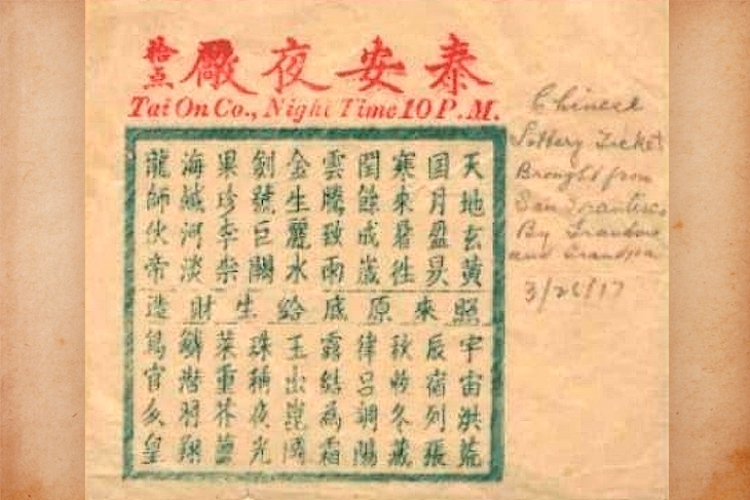 泰安夜廠
拾点
Tai On Co., Night Time 10 P.M.
天地玄黃
国月盈昃
寒來暑往
閏餘成歲
雲騰致雨
金生麗水
劍號巨闕
果珍李柰
海鹹河淡
龍師伙帝
照來原底給生財造
宇宙洪荒
辰宿列張
秋收冬藏
律呂調陽
露結為霜
玉出崑岡
珠稱夜光
菜重芥薑
鱗潛羽翔
鳥官皇
Chinese
Lottery Ticket
Brought from
San Francisco
By Grandma
and Grandpa
3/26/17